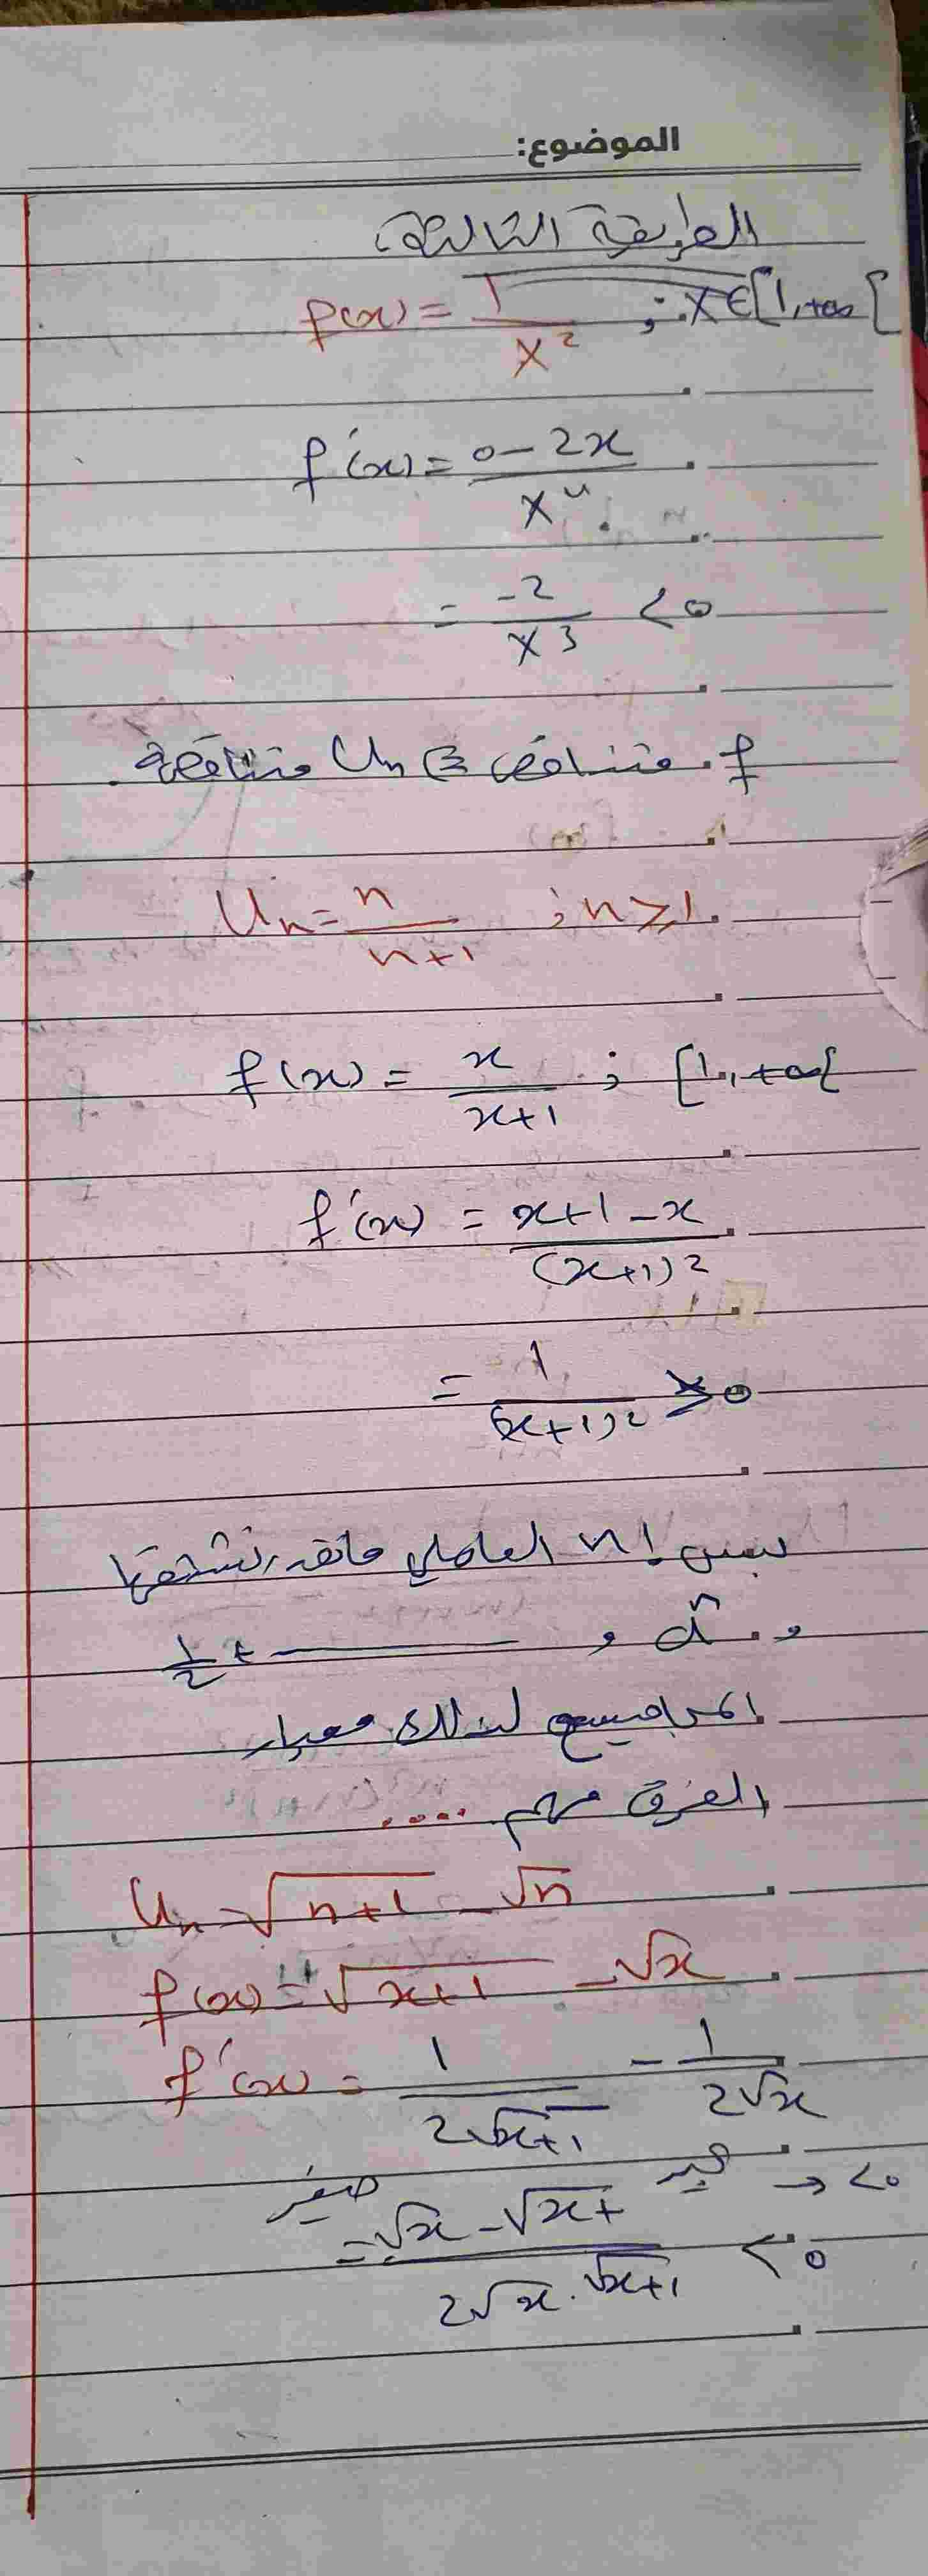 الموضوع:
الطريقة الثالثة:
f(x) = 1/x² ; x∈[1,+∞[
f'(x) = 0-2x/x⁴
= -2/x³ <0
f متناقص ⇐ Uₙ متناقصة.
Uₙ = n/n+1 ; n≥1
f(x) = x/x+1 ; [1,+∞[
f'(x) = x+1-x/(x+1)²
= 1/(x+1)² >0
بس n! العاملي مانقدر نشتقها
و aⁿ و 1/2+
المجاميع لذلك معيار
الفرق مهم ....
Uₙ = √n+1 - √n
f(x) = √x+1 - √x
f'(x) = 1/2√x+1 - 1/2√x
صغير كبير → <0
= √x - √x+/2√x.√x+1 <0